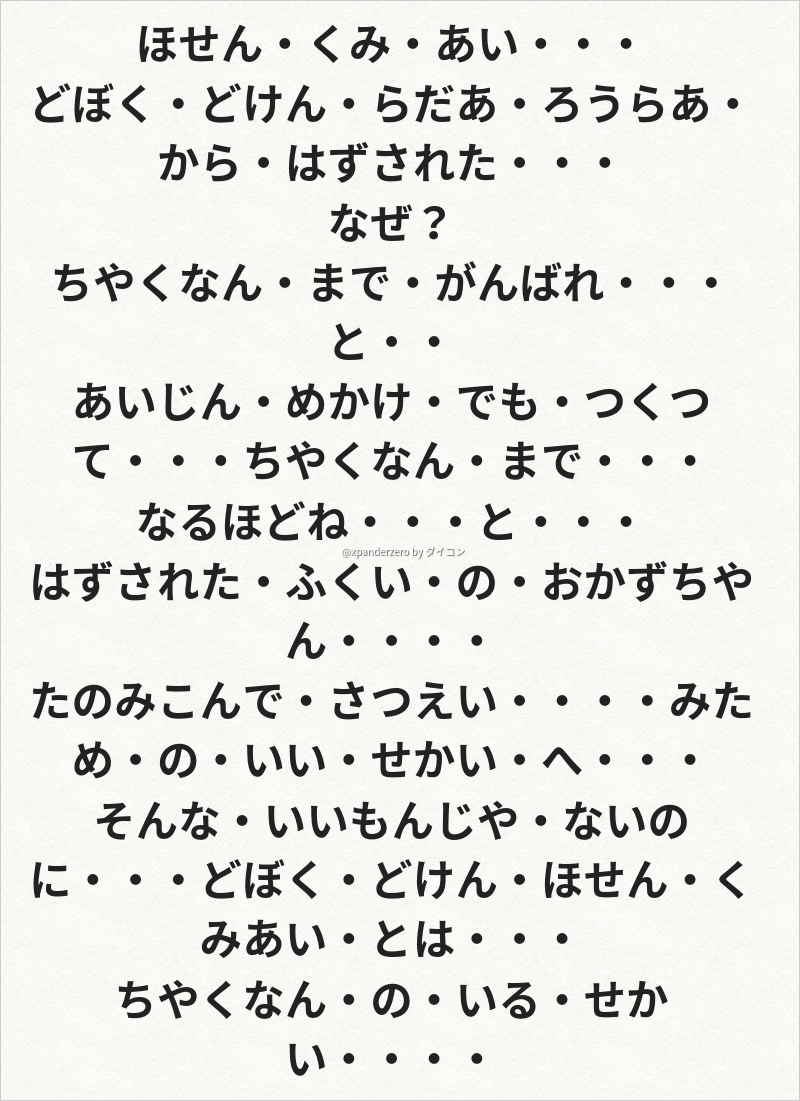 ほせん・くみ・あい・・・
どぼく・どけん・らだあ・ろうらあ・
から・はずされた・・・
なぜ？
ちやくなん・まで・がんばれ・・・
と・・
あいじん・めかけ・でも・つくつ
て・・・ちやくなん・まで・・・
なるほどね・・・と・・・
@xpanderzero by ダイコン
はずされた・ふくい・の・おかずちや
ん・・・・
たのみこんで・さつえい・・・・みた
め・の・いい・せかい・へ・・・
そんな・いいもんじや・ないの
に・・・どぼく・どけん・ほせん・く
みあい・とは・・・
ちやくなん・の・いる・せか
い・・・・